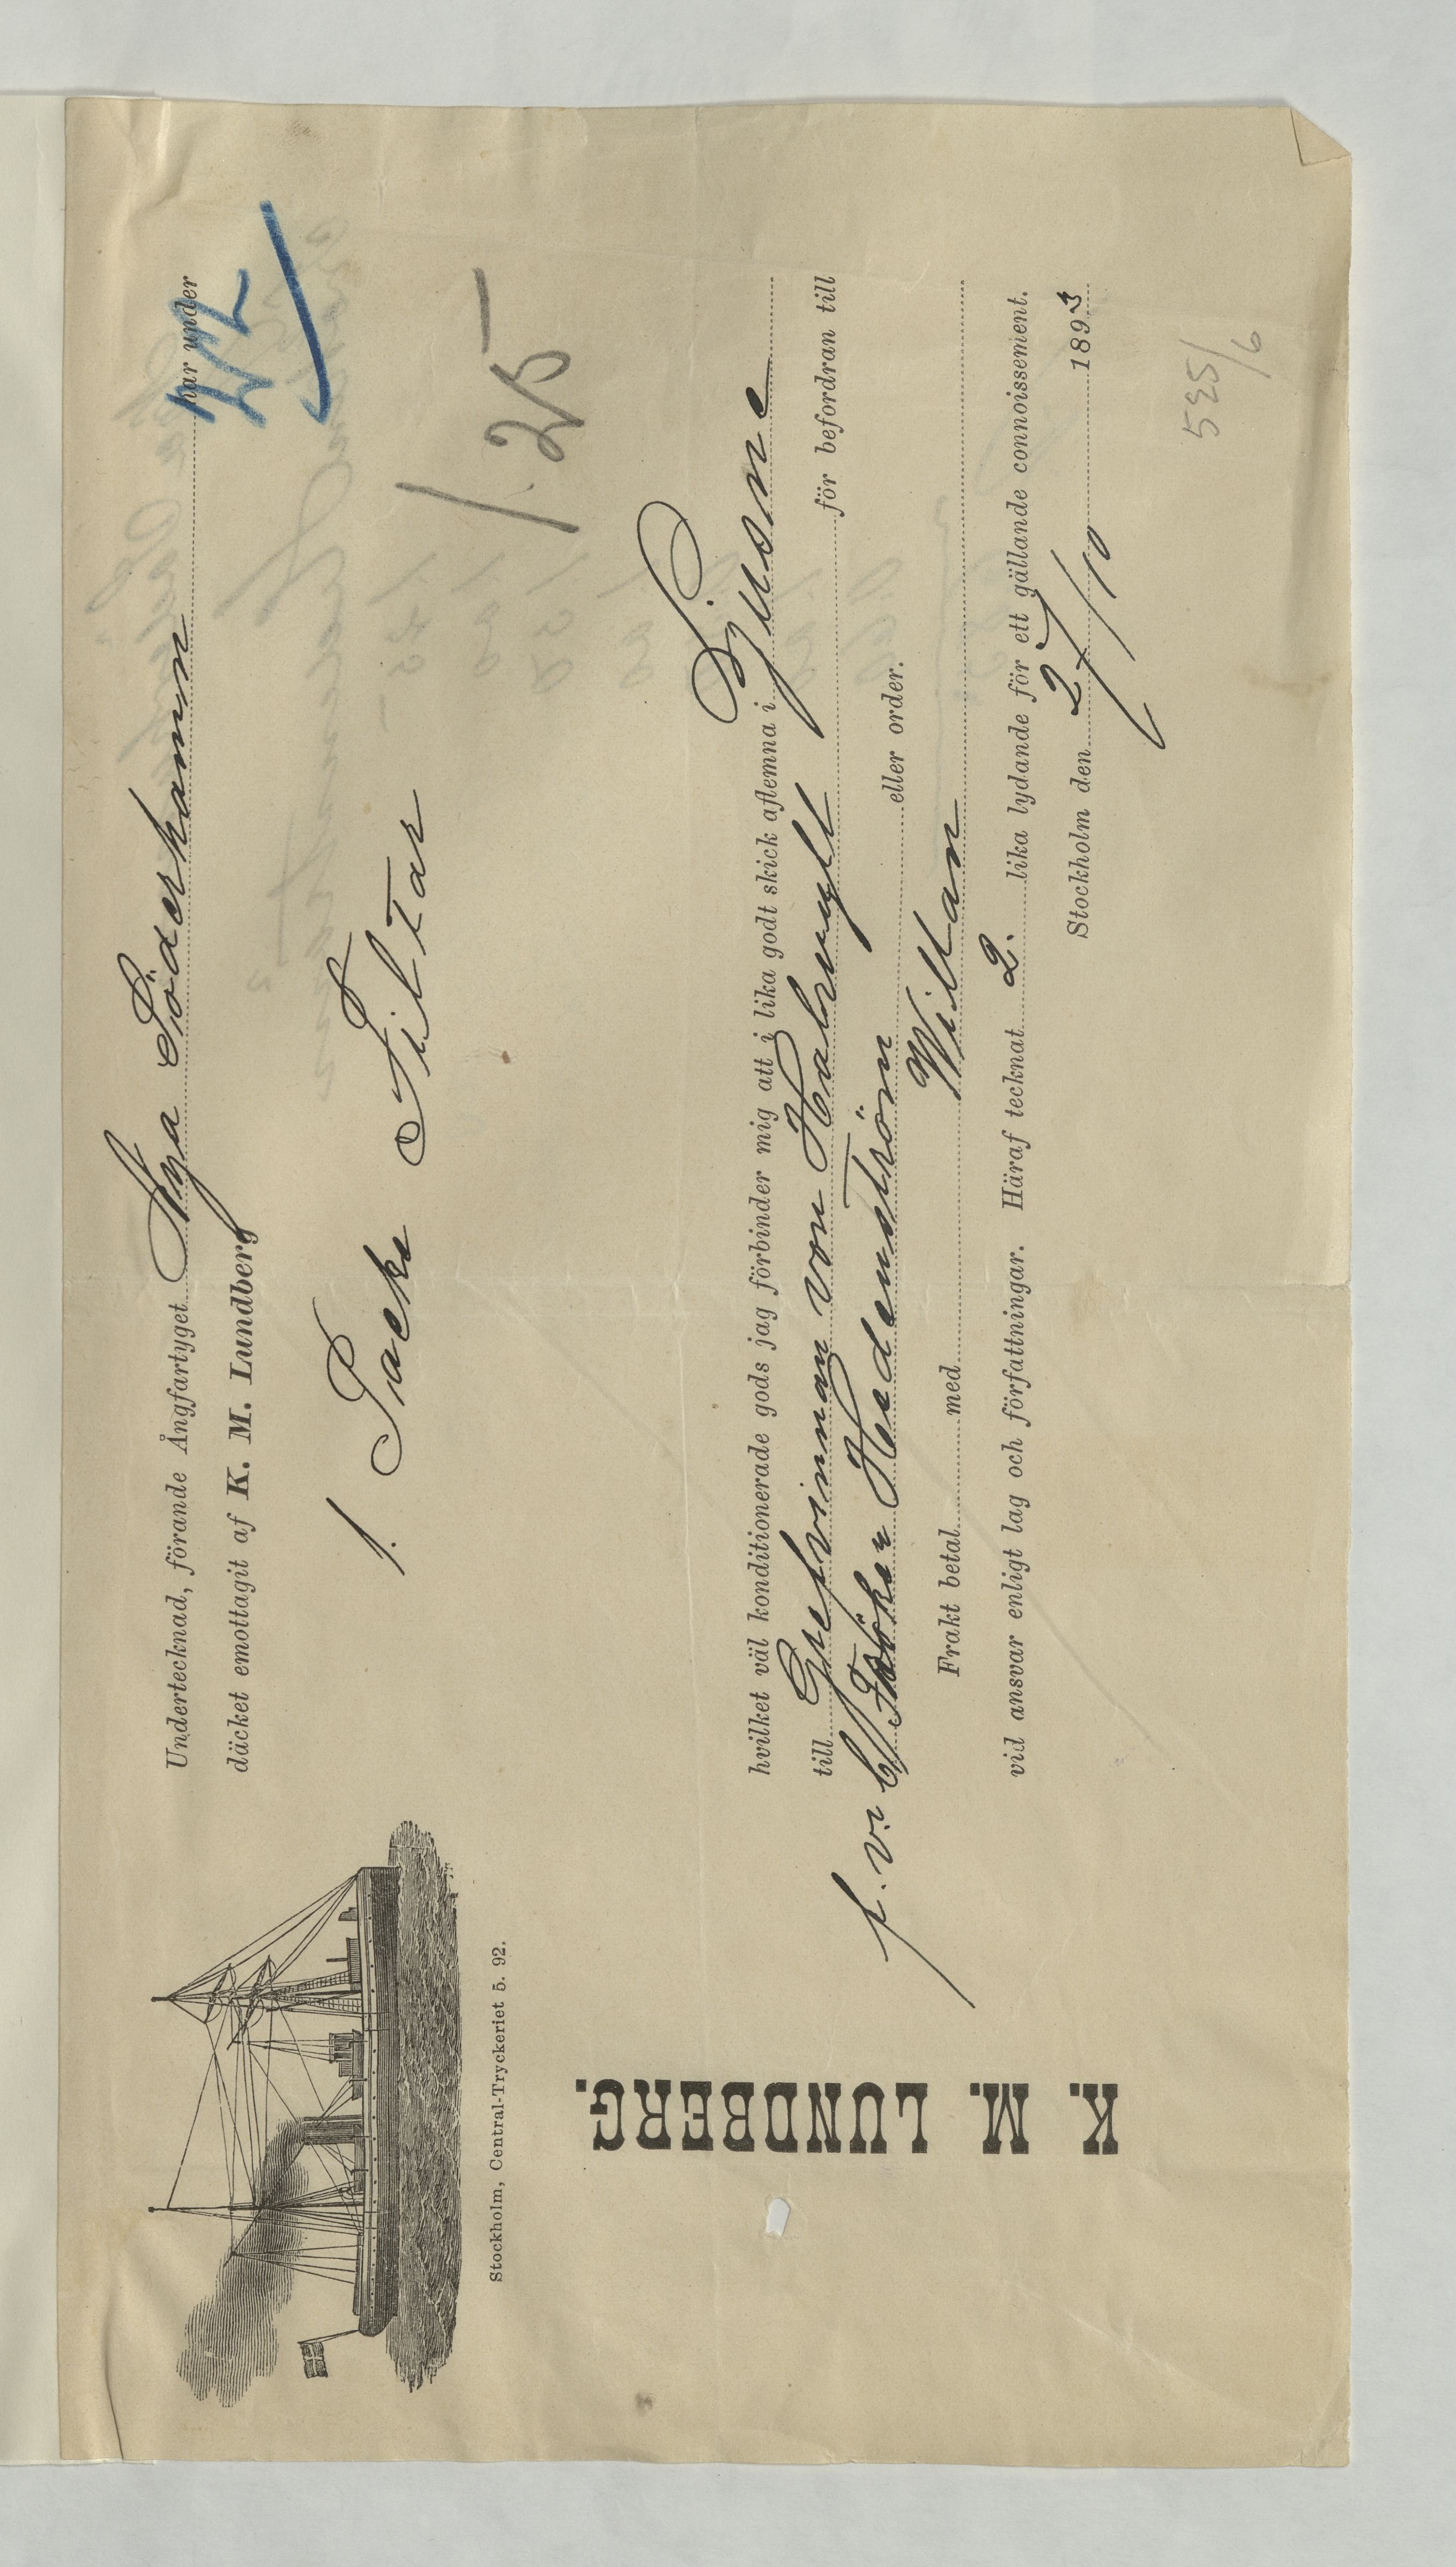 Undertecknad, förande Ångfartyget Nya Söderhamn har under
däcket emottagit af K. M. Lundberg
212
1. Säck Filtar
1.25
Stockholm, Central-Tryckeriet 5. 92.
K. M. LUNDBERG.
hvilket väl konditionerade gods jag förbinder mig att i lika godt skick aflemna i Ljusne
till Grefvinnan von Hallwyll för befordran till
p. v. Hedenström eller order.
Frakt betal med Willan
vid ansvar enligt lag och författningar. Häraf tecknat 2. lika lydande för ett gällande connoissement.
Stockholm den 27/10 1893
535/6